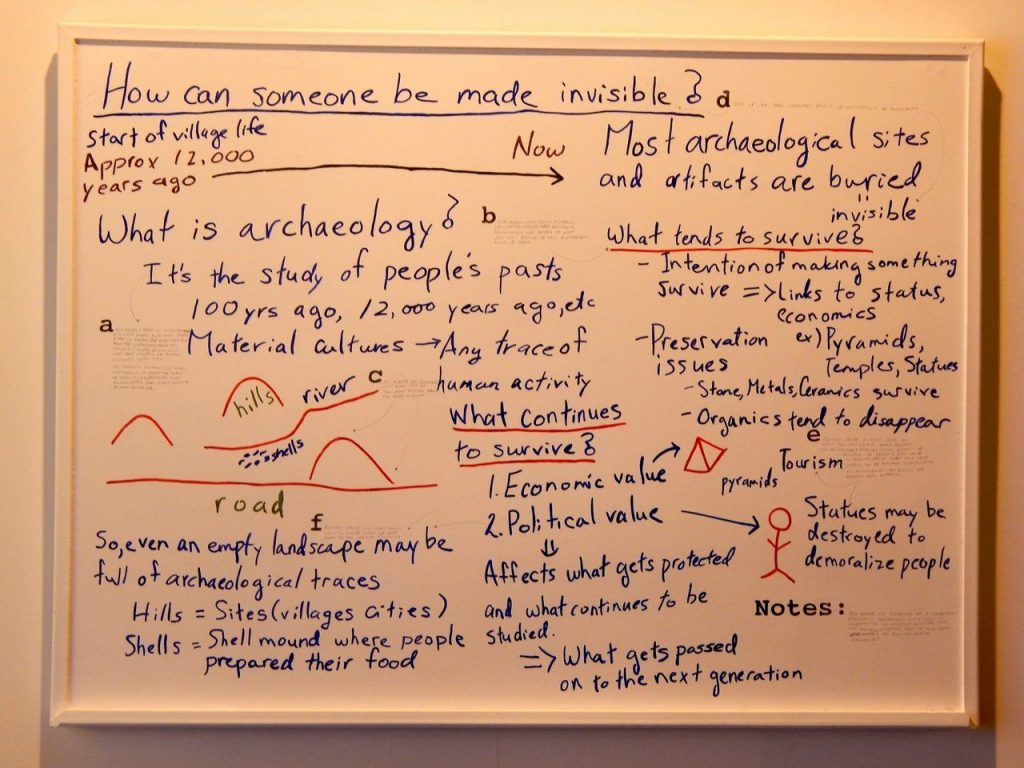 How can someone be made invisible?
d
Start of village life
Approx 12,000
years ago
Now
What is archaeology?
b
It's the study of people's pasts
100 yrs ago, 12,000 years ago, etc
a
Material cultures → Any trace of
human activity
hills
river
c
shells
road
f
So, even an empty landscape may be
full of archaeological traces
Hills = Sites (villages cities)
Shells = Shell mound where people
prepared their food
What continues
to survive?
1. Economic value
pyramids
Tourism
2. Political value
⇓
Affects what gets protected
and what continues to be
studied.
=> What gets passed
on to the next generation
Most archaeological sites
and artifacts are buried
invisible
What tends to survive?
- Intention of making something
survive => Links to status,
economics
- Preservation
issues
ex) Pyramids,
Temples, Statues
- Stone, Metals, Ceramics survive
- Organics tend to disappear
e
Statues may be
destroyed to
demoralize people
Notes: